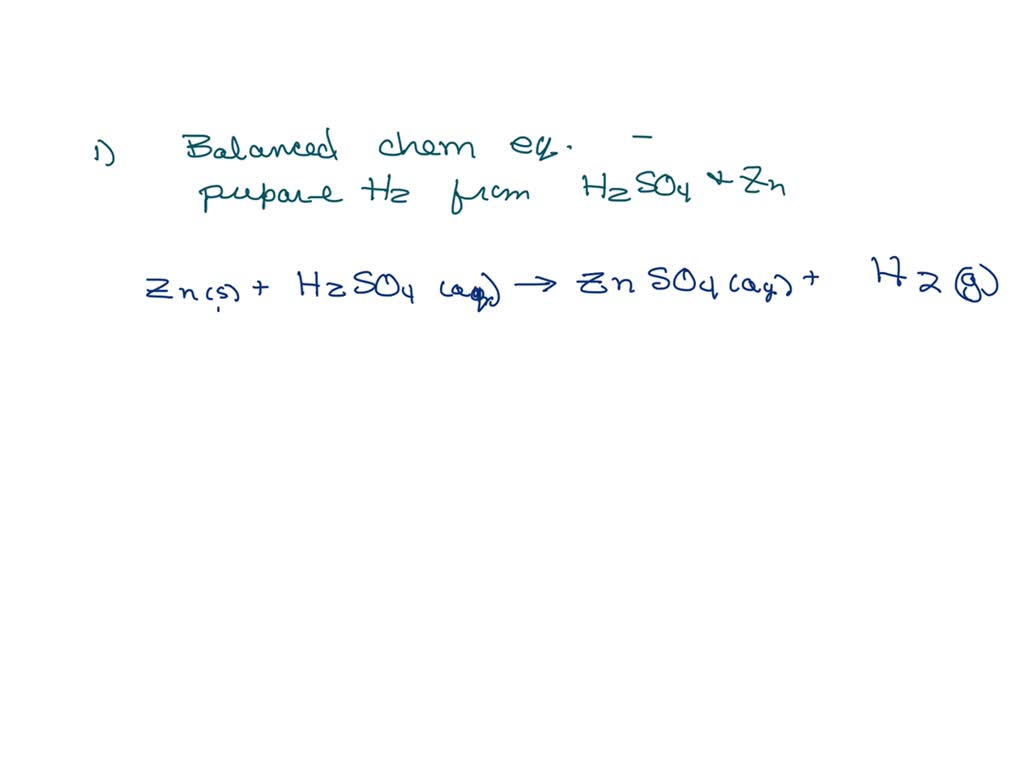 1) Balanced chem eq. –
prepare H2 from H2SO4 & Zn
Zn(s) + H2SO4 (aq) → ZnSO4(aq) + H2(g)